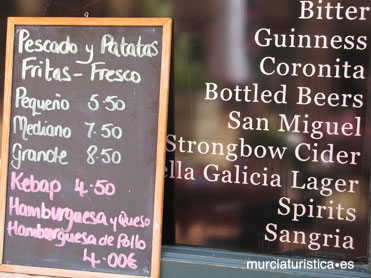 Pescado y Patatas
Fritas - Fresco
Pequeño 5.50
Mediano 7.50
Grande 8.50
Kebap 4.50
Hamburguesa y Queso
Hamburguesa de Pollo
4.00€
Bitter
Guinness
Coronita
Bottled Beers
San Miguel
Strongbow Cider
ella Galicia Lager
Spirits
Sangria
murciaturistica•es